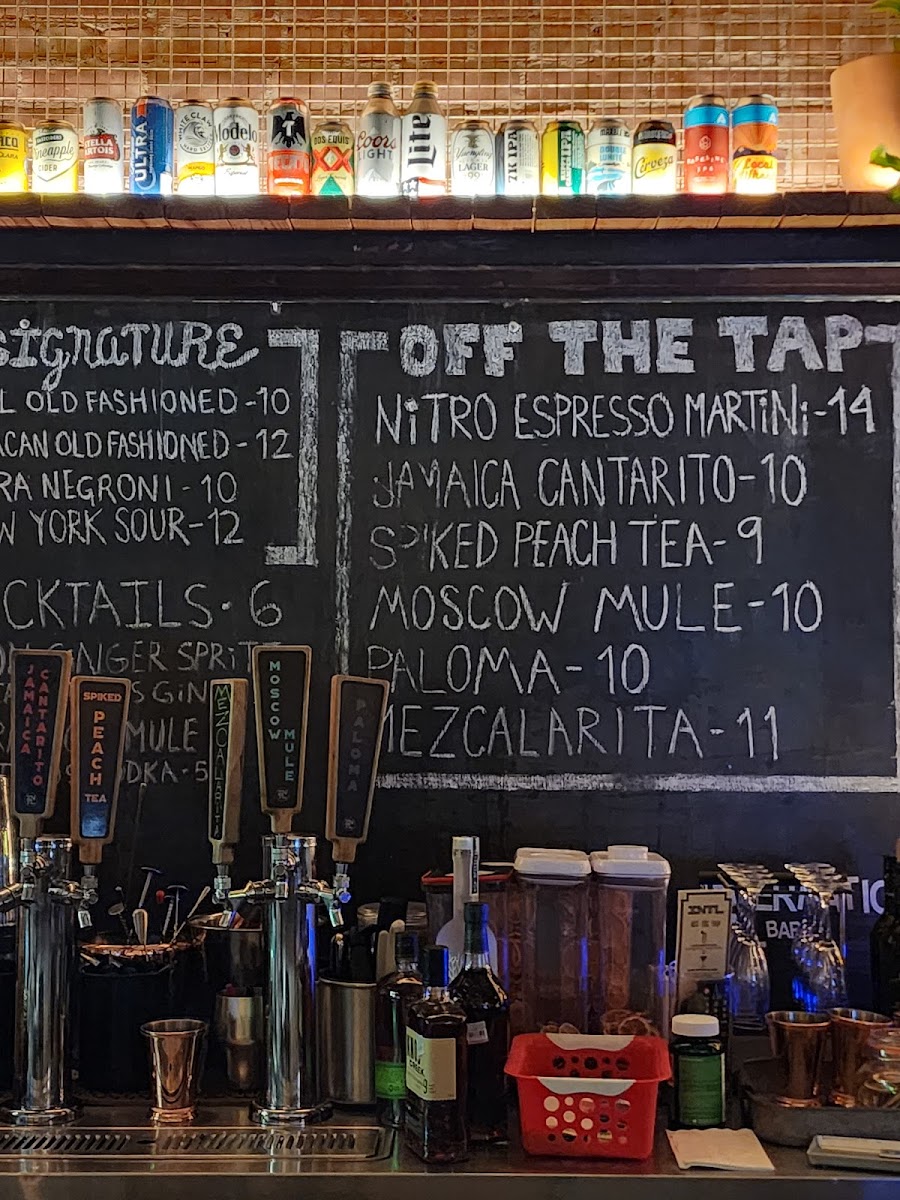 Pineapple
CIDER
STELLA
ARTOIS
ULTRA
WHITE CLAW
Modelo
Especial
DOS EQUIS
Coors
LIGHT
Lite
Yuengling
LAGER
Cerveza
SIGNATURE
L OLD FASHIONED - 10
CAN OLD FASHIONED - 12
RA NEGRONI - 10
W YORK SOUR - 12
CKTAILS · 6
GINGER SPRIT
GIN
MULE
DKA - 5
OFF THE TAP
NITRO ESPRESSO MARTINI - 14
JAMAICA CANTARITO - 10
SPIKED PEACH TEA - 9
MOSCOW MULE - 10
PALOMA - 10
MEZCALARITA - 11
JAMAICA
CANTARITO
SPIKED
PEACH
TEA
MEZCALARITA
MOSCOW
MULE
PALOMA
CREEK
INTL
ERNATIO
BAR